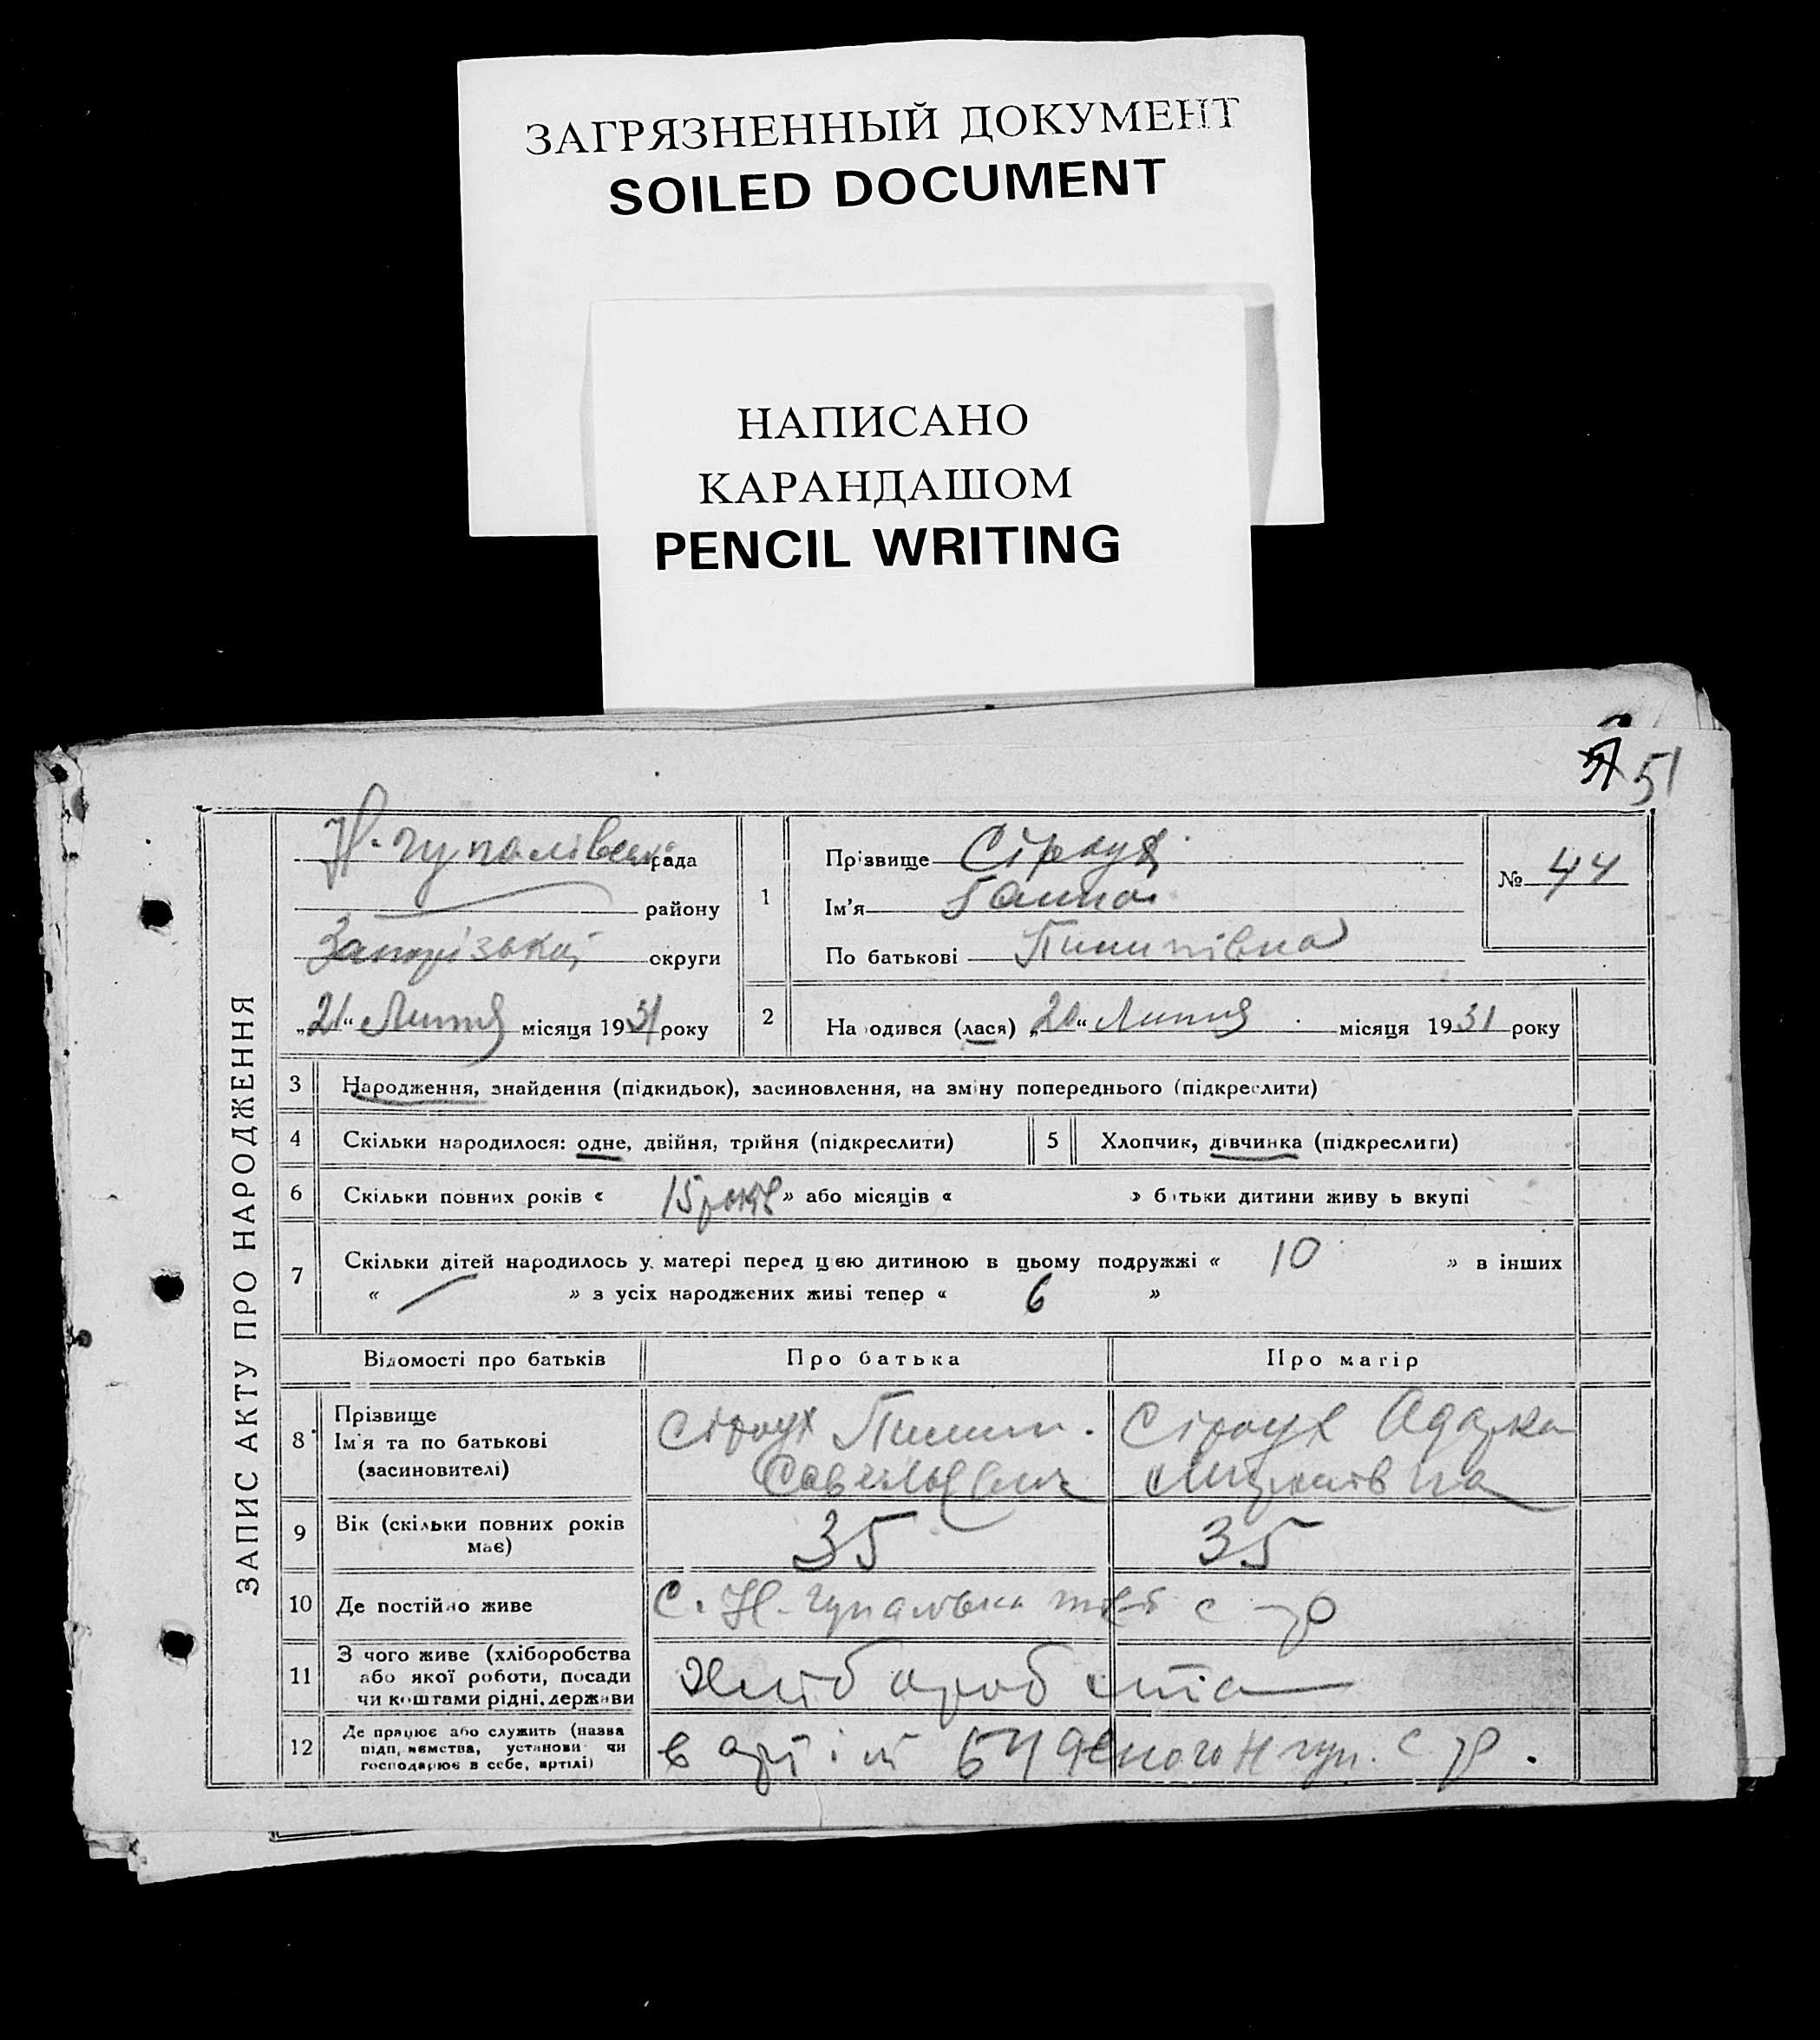 ЗАГРЯЗНЕННЫЙ ДОКУМЕНТ
SOILED DOCUMENT
НАПИСАНО
КАРАНДАШОМ
PENCIL WRITING
51
ЗАПИС АКТУ ПРО НАРОДЖЕННЯ
Н-гупалівська рада
району
Запорізької округи
„21“ Лютня місяця 1931 року
1
Прізвище Сіроух
Ім'я Ганна
По батькові Пилипівна
№ 44
2
Народився (лася) „20“ Лютня місяця 1931 року
3 Народження, знайдення (підкидьок), засиновлення, на зміну попереднього (підкреслити)
4 Скільки народилося: одне, двійня, трійня (підкреслити) 5 Хлопчик, дівчинка (підкреслити)
6 Скільки повних років « 15 років » або місяців « » батьки дитини живуть вкупі
7 Скільки дітей народилось у матері перед цією дитиною в цьому подружжі « 10 » в інших
« — » з усіх народжених живі тепер « 6 »
Відомості про батьків Про батька Про матір
8 Прізвище
Ім'я та по батькові
(засновителі)
Сіроух Пилип.
Савельєвич
Сіроух Одарка
9 Вік (скільки повних років має) 35 35
10 Де постійно живе с. Н-гупалівка с-р
11 З чого живе (хліборобства
або якої роботи, посади
чи коштами рідні, держави
Хлібороб
12 Де працює або служить (назва
підприємства, установи чи
господарює в себе, артілі)
в артіл Будяного Н гуп. с р.